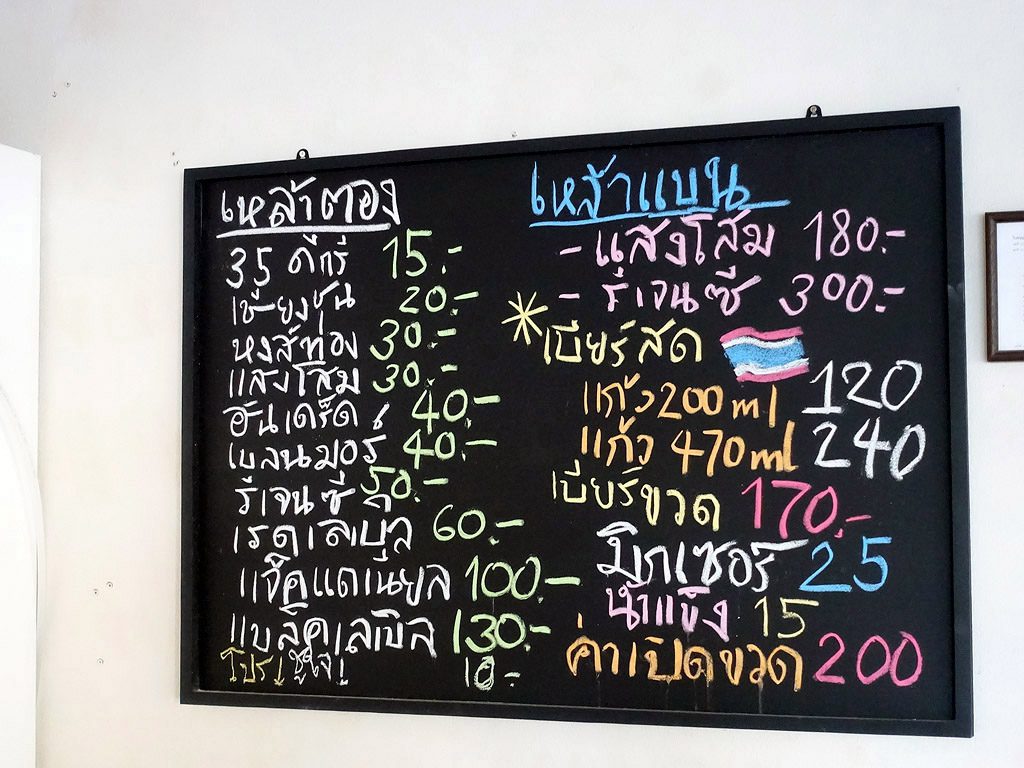 เหล้าตอง
35 ดีกรี 15.-
เชี่ยงชุน 20.-
หงส์ทอง 30.-
แสงโสม 30.-
ฮันเดร็ด 40.-
เบลนมอร์ 40.-
รีเจนซี่ 50.-
เรดเลเบิ้ล 60.-
แจ็คแดเนียล 100.-
แบล็คเลเบิล 130.-
โปร 10.-
เหล้าแบน
- แสงโสม 180.-
- รีเจนซี 300.-
* เบียร์สด
แก้ว 200 ml 120
แก้ว 470 ml 240
เบียร์ขวด 170.-
มิกเซอร์ 25
น้ำแข็ง 15
ค่าเปิดขวด 200